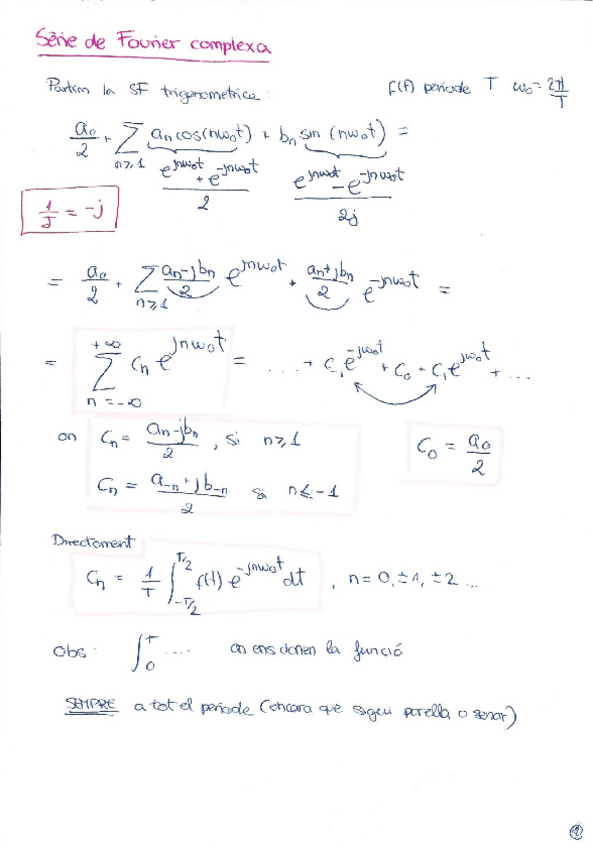 Sèrie de Fourier complexa
Partim la SF trigonometrica: f(t) període T ω₀ = 2π/T
a₀/2 + Σ_{n≥1} aₙ cos(nω₀t) + bₙ sin(nω₀t) =
(e^{jnω₀t} + e^{-jnω₀t})/2 (e^{jnω₀t} - e^{-jnω₀t})/2j
1/j = -j
= a₀/2 + Σ_{n≥1} (aₙ - jbₙ)/2 e^{jnω₀t} + (aₙ + jbₙ)/2 e^{-jnω₀t} =
= Σ_{n=-∞}^{+∞} cₙ e^{jnω₀t} = .... + c₋₁ e^{-jω₀t} + c₀ + c₁ e^{jω₀t} + ...
on cₙ = (aₙ - jbₙ)/2 , si n≥1 c₀ = a₀/2
cₙ = (a₋ₙ + jb₋ₙ)/2 si n≤-1
Directament
cₙ = 1/T ∫_{-T/2}^{T/2} f(t) e^{-jnω₀t} dt , n = 0, ±1, ±2 ...
Obs: ∫₀^T .... on ens donen la funció
SEMPRE a tot el període (encara que sigui parella o senar)
1